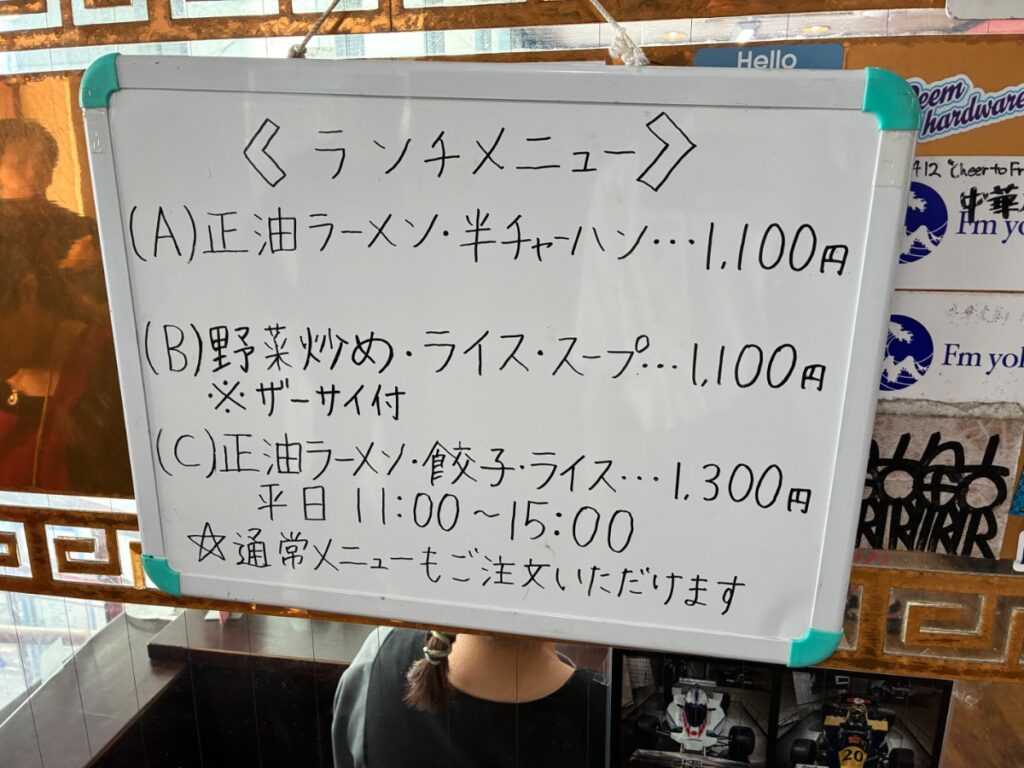 Hello
《ランチメニュー》
(A)正油ラーメン・半チャーハン…1,100円
(B)野菜炒め・ライス・スープ…1,100円
※ザーサイ付
(C)正油ラーメン・餃子・ライス…1,300円
平日 11:00～15:00
☆通常メニューもご注文いただけます
hardware
中華
Fm yo
Fm yo
20